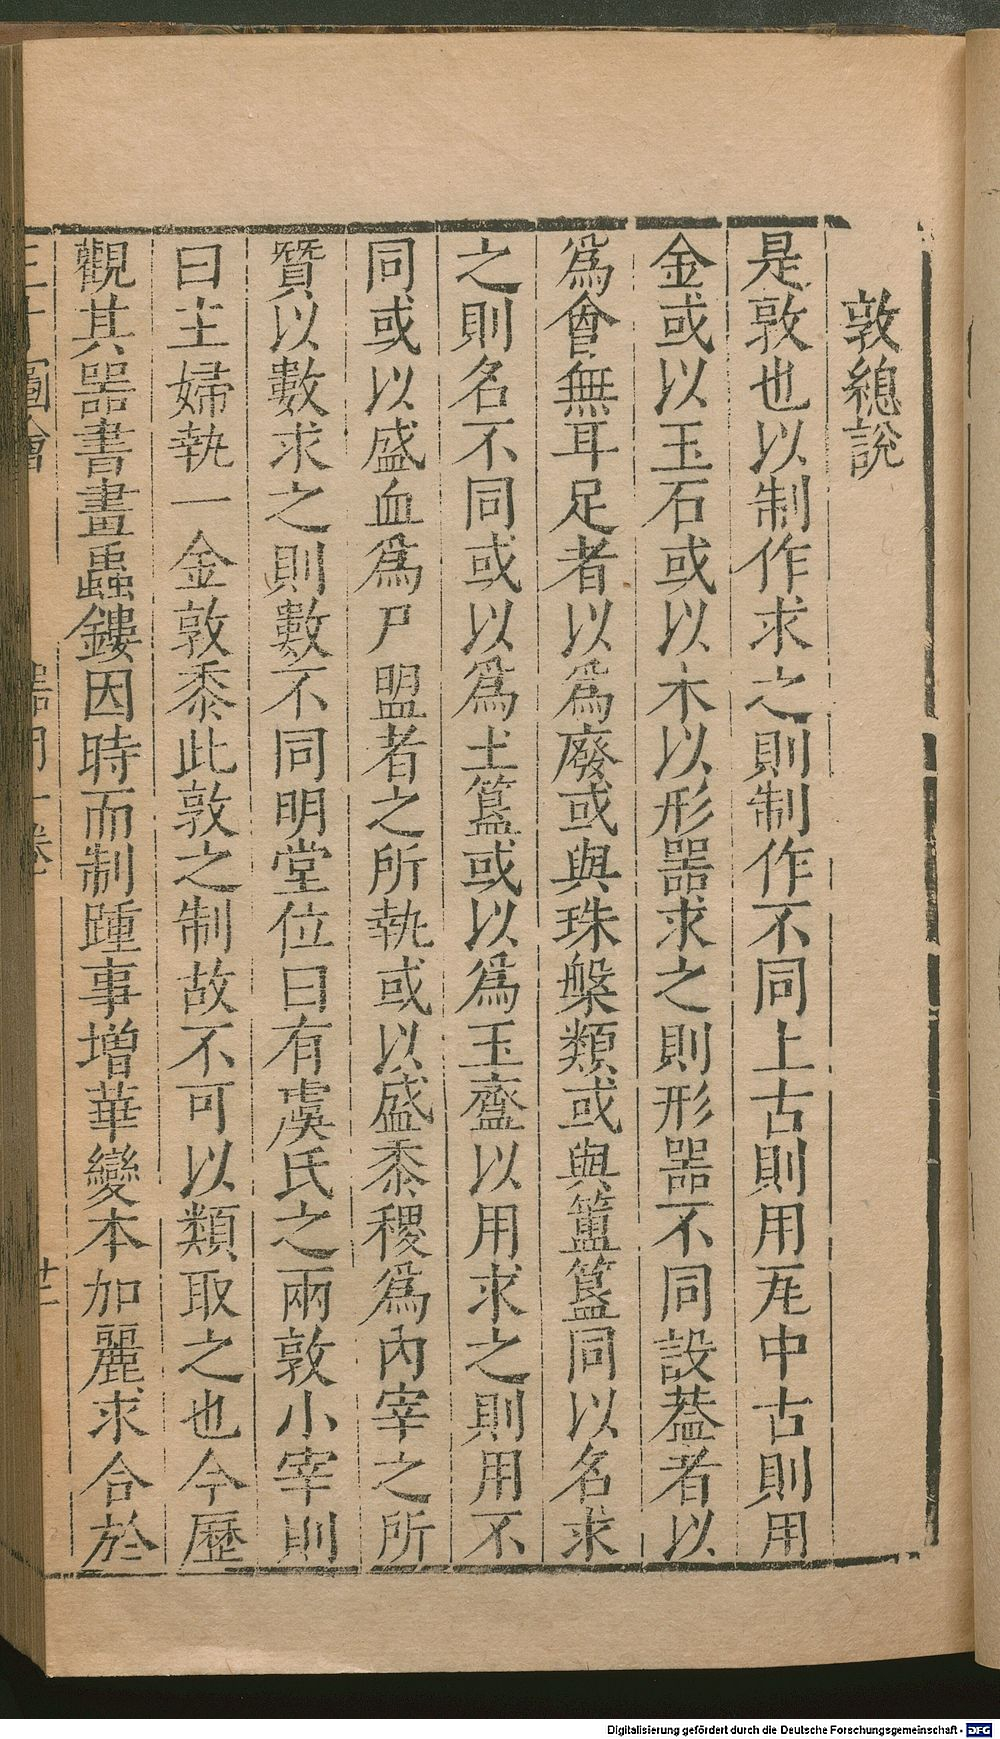 敦總說
是敦也以制作求之則制作不同上古則用瓦中古則用
金或以玉石或以木以形器求之則形器不同設葢者以
爲會無耳足者以爲廢或與珠槃類或與簠簋同以名求
之則名不同或以爲土簋或以爲玉齍以用求之則用不
同或以盛血爲尸盟者之所執或以盛黍稷爲內宰之所
贊以數求之則數不同明堂位曰有虞氏之兩敦小宰則
曰主婦執一金敦黍此敦之制故不可以類取之也今歷
觀其器書畫蟲鏤因時而制踵事增華變本加麗求合於
圖會
Digitalisierung gefördert durch die Deutsche Forschungsgemeinschaft - DFG